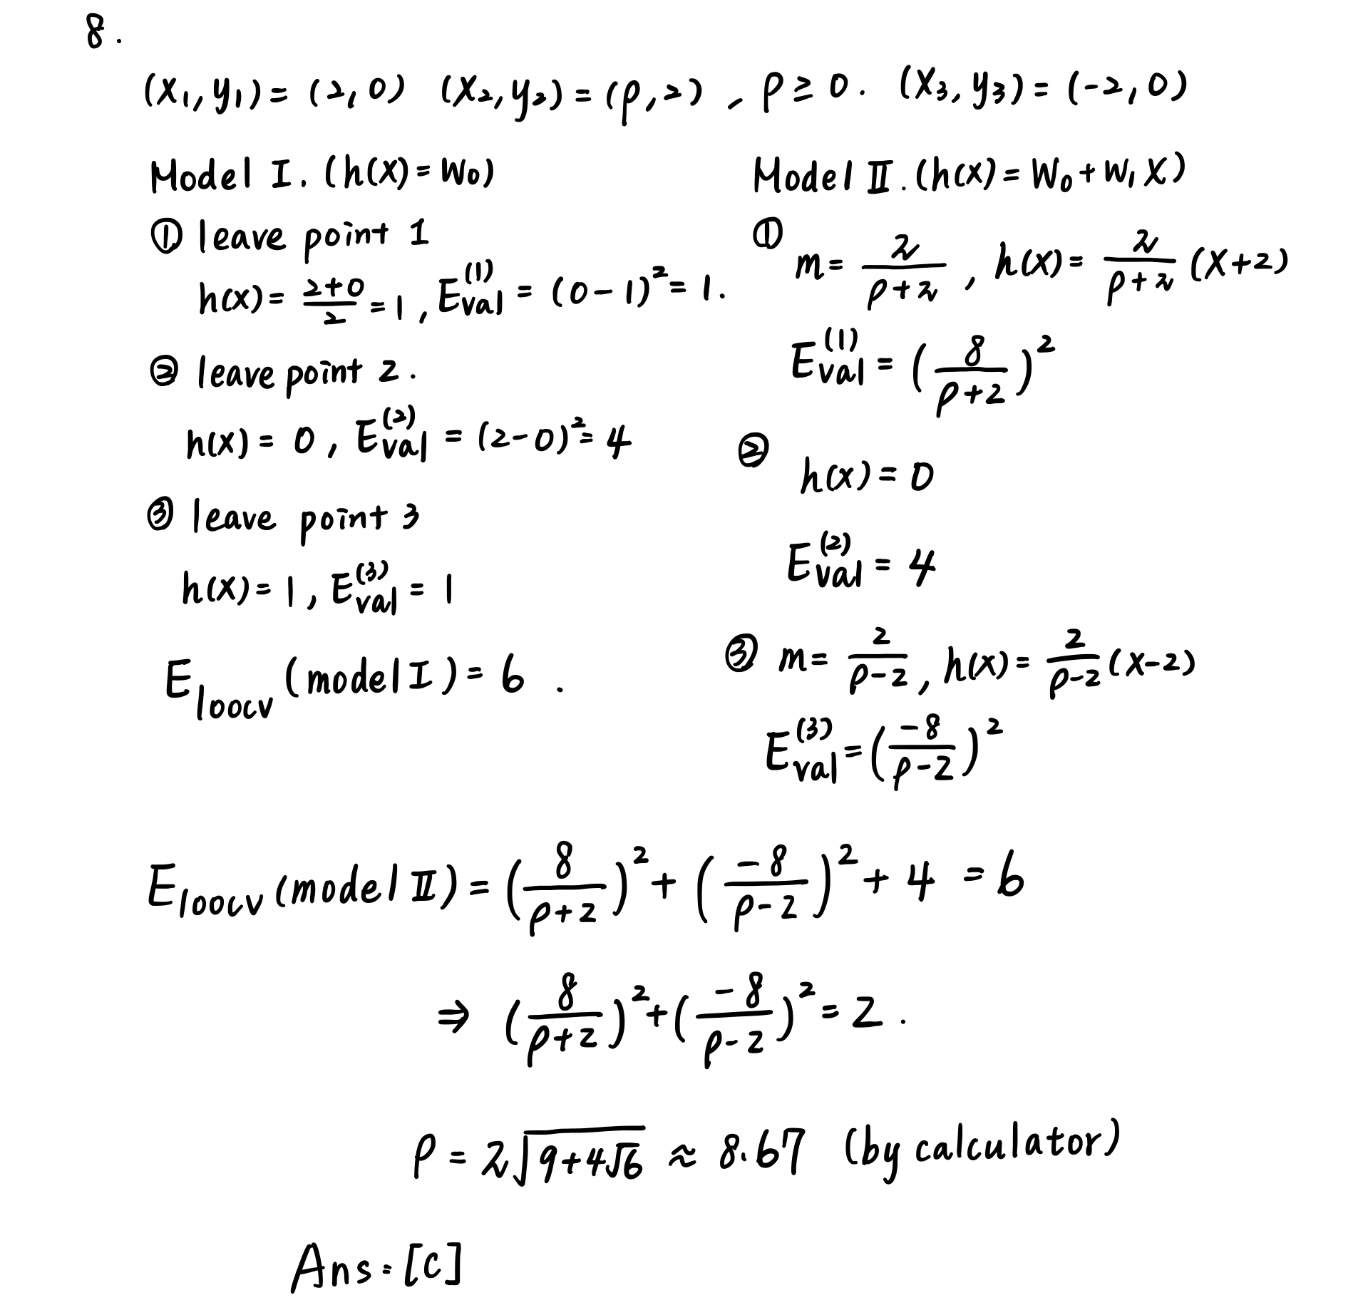 8.
(x₁,y₁) = (2,0) (x₂,y₂) = (ρ,2), ρ ≥ 0. (x₃,y₃) = (-2,0)
Model I. (h(x) = w₀)
① leave point 1
h(x) = (2+0)/2 = 1, E_val^(1) = (0-1)² = 1.
② leave point 2.
h(x) = 0, E_val^(2) = (2-0)² = 4
③ leave point 3
h(x) = 1, E_val^(3) = 1
E_loocv (model I) = 6.
Model II. (h(x) = w₀ + w₁x)
① m = 2/(ρ+2), h(x) = 2/(ρ+2) (x+2)
E_val^(1) = (8/(ρ+2))²
②
h(x) = 0
E_val^(2) = 4
③ m = 2/(ρ-2), h(x) = 2/(ρ-2) (x-2)
E_val^(3) = (-8/(ρ-2))²
E_loocv (model II) = (8/(ρ+2))² + (-8/(ρ-2))² + 4 = 6
⇒ (8/(ρ+2))² + (-8/(ρ-2))² = 2.
ρ = 2√(9+4√6) ≈ 8.67 (by calculator)
Ans = [c]